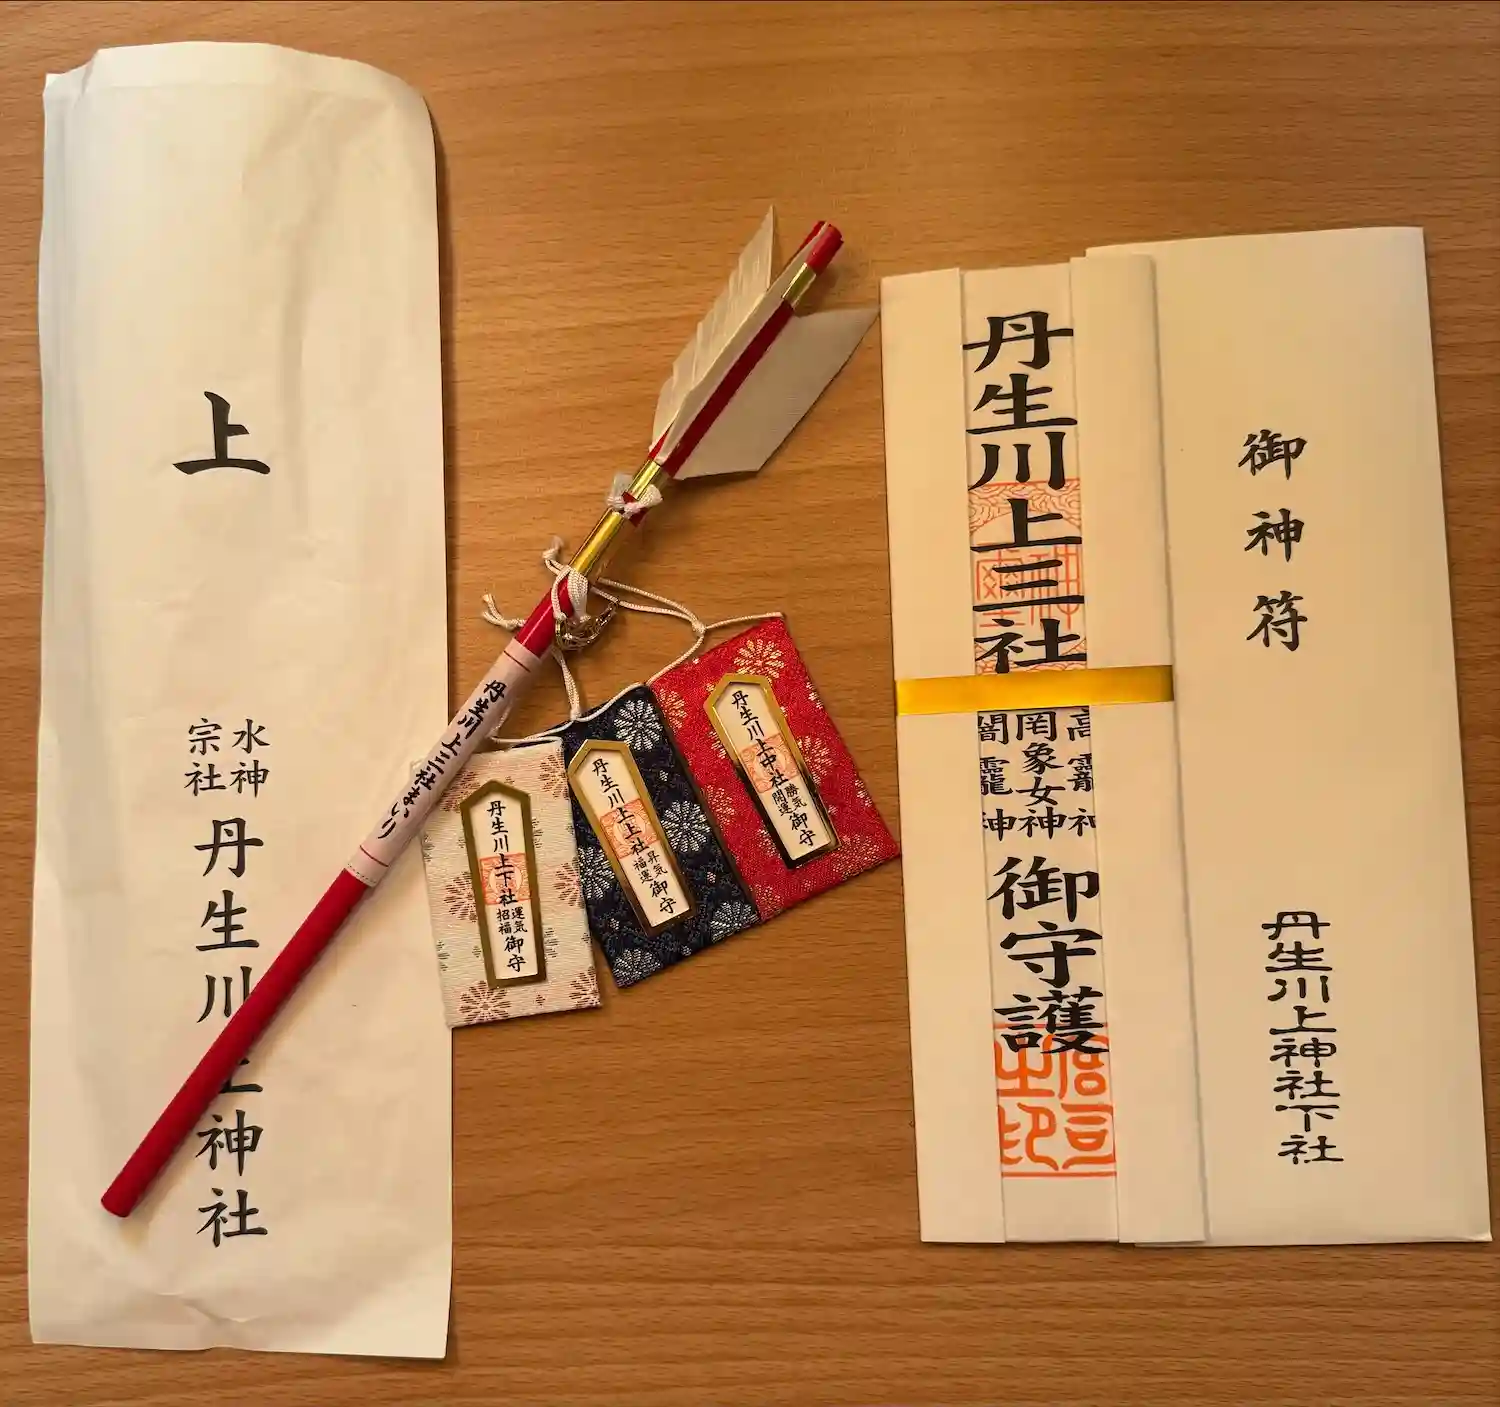 上
水神
宗社
丹生川上神社
丹生川上三社まいり
丹生川上下社
運気
招福
御守
丹生川上上社
昇気
福運
御守
丹生川上中社
勝気
開運
御守
丹生川上三社
高龗神
罔象女神
闇龗神
御守護
御神符
丹生川上神社下社